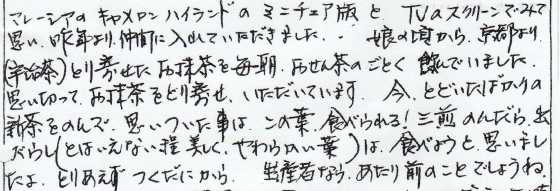 マレーシアの キャメロン ハイランドの ミニチュア版 と、TVのスクリーンでみて
思い、昨年より、仲間に 入れていただきました。・ 娘の頃から、京都より
(宇治茶)とり寄せた お抹茶を毎朝、おせん茶のごとく 飲んでいました。
思い切って、お抹茶をとり寄せ、いただいています。 今、とどいたばかりの
新茶をのんで、思いついた事は、この葉、食べられる! 三煎 のんだら、出
だらし(とはいえない程 美しく、やわらかい葉)は、食べようと、思いまし
たよ。とりあえず つくだにから。 生産者なら、あたり前のことでしょうね。